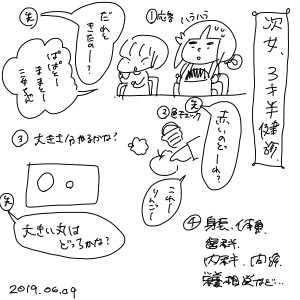 次女、3才半健診
①応答
ハラハラ
先
だれと
きたのー?
ぱぱとー
ままとー
③大きさ分かるかな?
②色チェック
先
赤いのどーれ?
これー
りんごー
先
大きい丸は
どっちかな?
④身長、体重
歯科
内科、問診
栄養相談など…
2019.06.09